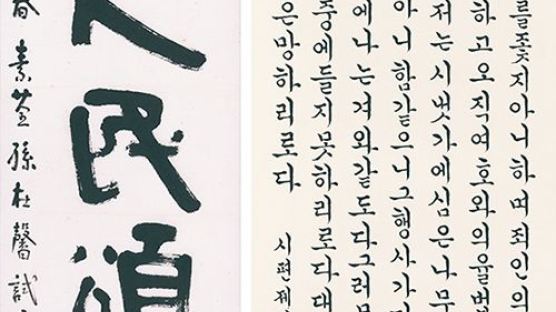 人民頌
春素荃孫杜馨試
를좇지아니하며죄인의
하고오직여호와의율법
저는시냇가에심은나무
아니함같으니그행사가
에나는겨와같도다그러
중에들지못하리로다대
은망하리로다
시편제